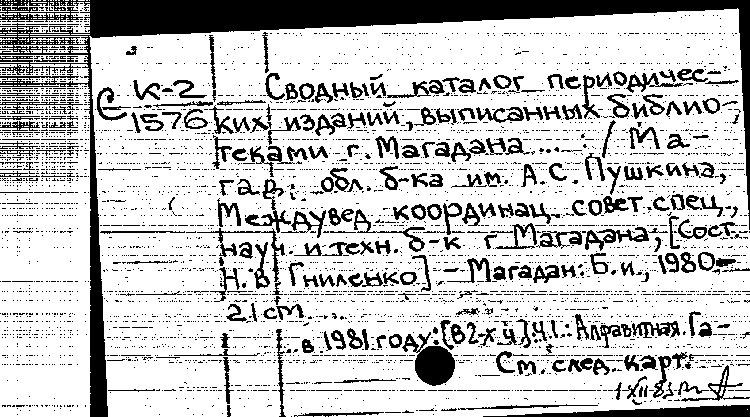 С К-2
1576
Сводный каталог периодичес-
ких изданий, выписанных библио-
теками г. Магадана ... : / Ма-
гад. обл. б-ка им. А.С. Пушкина,
Междувед. координац. совет спец.,
науч. и техн. б-к г. Магадана; [Сост.
Н.В. Гниленко]. - Магадан: Б.и., 1980-
21 см.
... в 1981 году: [В 2-х ч.]. Ч.1.: Алфавитная. Га-
См. след. карт.